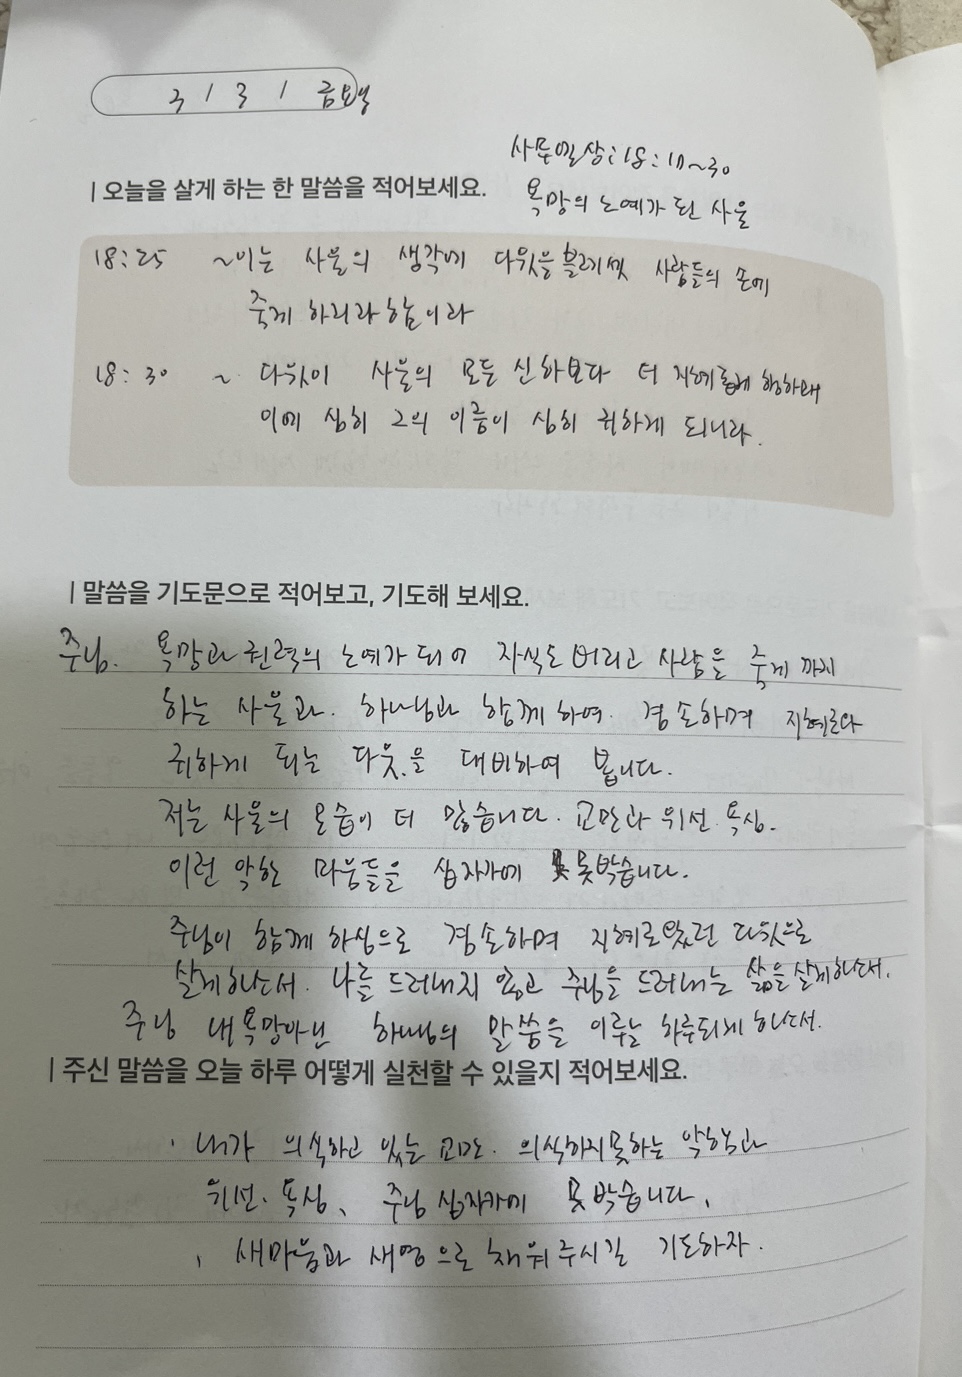 3 / 3 / 금요일
사무엘상:18:10~30
| 오늘을 살게 하는 한 말씀을 적어보세요.
욕망의 노예가 된 사울
18:25 ~이는 사울의 생각에 다윗을 블레셋 사람들의 손에
죽게 하리라 함이라
18:30 ~ 다윗이 사울의 모든 신하보다 더 지혜롭게 행하매
이에 심히 그의 이름이 심히 귀하게 되니라.
| 말씀을 기도문으로 적어보고, 기도해 보세요.
주님. 욕망과 권력의 노예가 되어 자식도 버리고 사람을 죽게 까지
하는 사울과. 하나님과 함께 하여. 겸손하며 지혜로와
귀하게 되는 다윗을 대비하여 봅니다.
저는 사울의 모습이 더 많습니다. 교만과 위선. 욕심.
이런 악한 마음들을 십자가에 못박습니다.
주님이 함께 하심으로 겸손하며 지혜로왔던 다윗으로
살게하소서. 나를 드러내지 않고 주님을 드러내는 삶을 살게하소서.
주님 내 욕망아닌 하나님의 말씀을 이루는 하루되게 하소서.
| 주신 말씀을 오늘 하루 어떻게 실천할 수 있을지 적어보세요.
. 내가 의식하고 있는 교만. 의식하지못하는 악함과
위선. 욕심、 주님 십자가에 못박습니다.
. 새마음과 새영으로 채워주시길 기도하자.